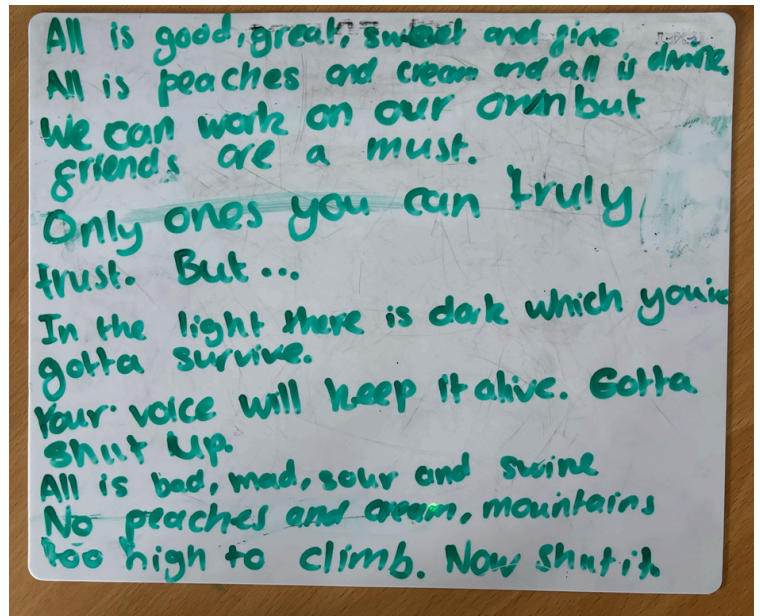 All is good, great, sweet and fine
All is peaches and cream and all is divine.
We can work on our own but
friends are a must.
Only ones you can truly
trust. But...
In the light there is dark which you've
gotta survive.
Your voice will keep it alive. Gotta
shut up.
All is bad, mad, sour and swine
No peaches and cream, mountains
too high to climb. Now shut it.